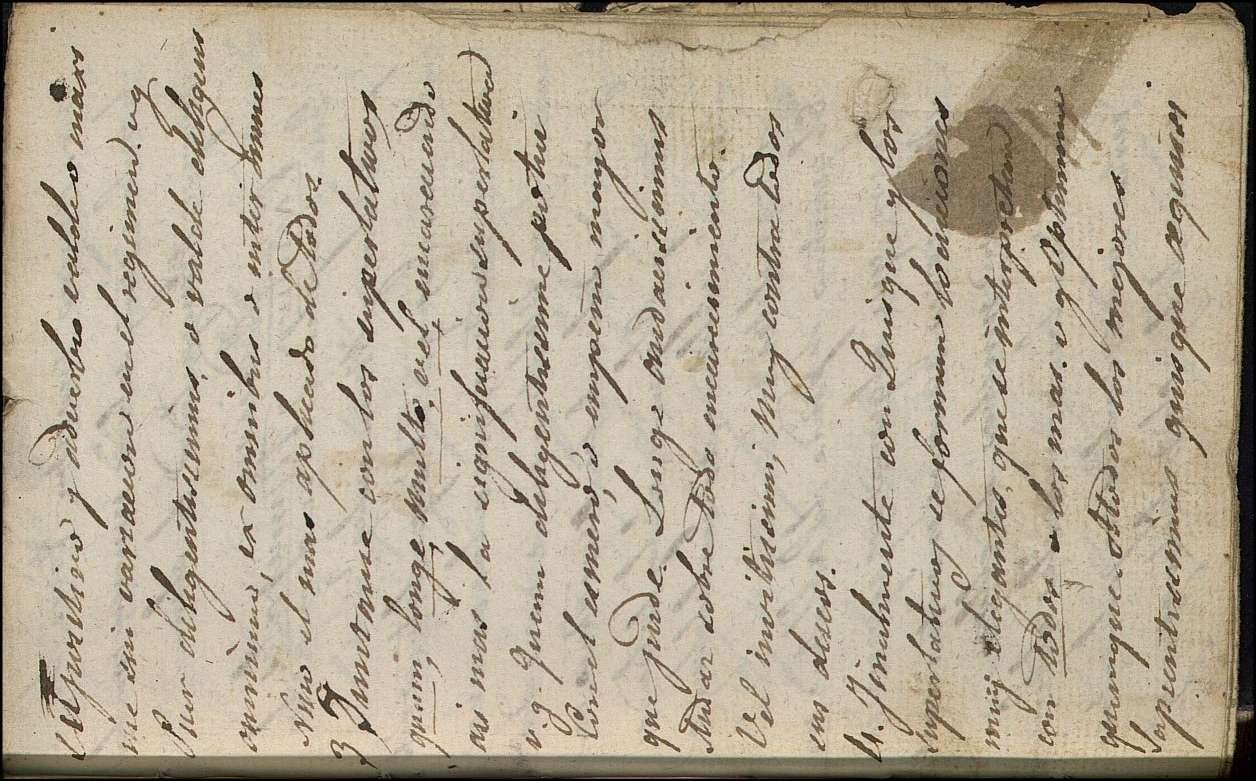 sitivo y adverbio valde o maxi
me sin variacion en el regimen. v.g.
Puer diligentissimus, o valde diligens
omnium, ex omnibus o inter omnes
Niño el mas aplicado de todos.
3 Juntanse con los superlativos
quam, longe multo, vel encareciendo
asi mas la significacion superlativa
v.g. Quam diligentissime potui
Con el esmero, o empeño mayor
que pude. Longe audacissimus
Audaz sobre todo encarecimiento.
Vel invitissimi, Muy contra todos
sus deseos.
4. Igualmente con Quisque y los
superlativos se forman locuciones
muy elegantes, que se interpretan
con todos o los mas. v.g. Optimum
quemque o todos los mejores
Sapientissimus quisque aequissi